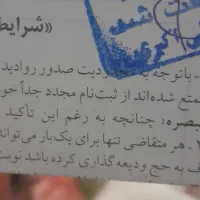 «شرایط
باتوجه به دیت صدور روادید
متع شده‌اند از ثبت‌نام مجدد جداً خو
بصره: چنانچه به رغم این تأکید
- هر متقاضی تنها برای یک‌بار می‌تواند
ف به حج ودیعه‌گذاری کرده باشد نوبت